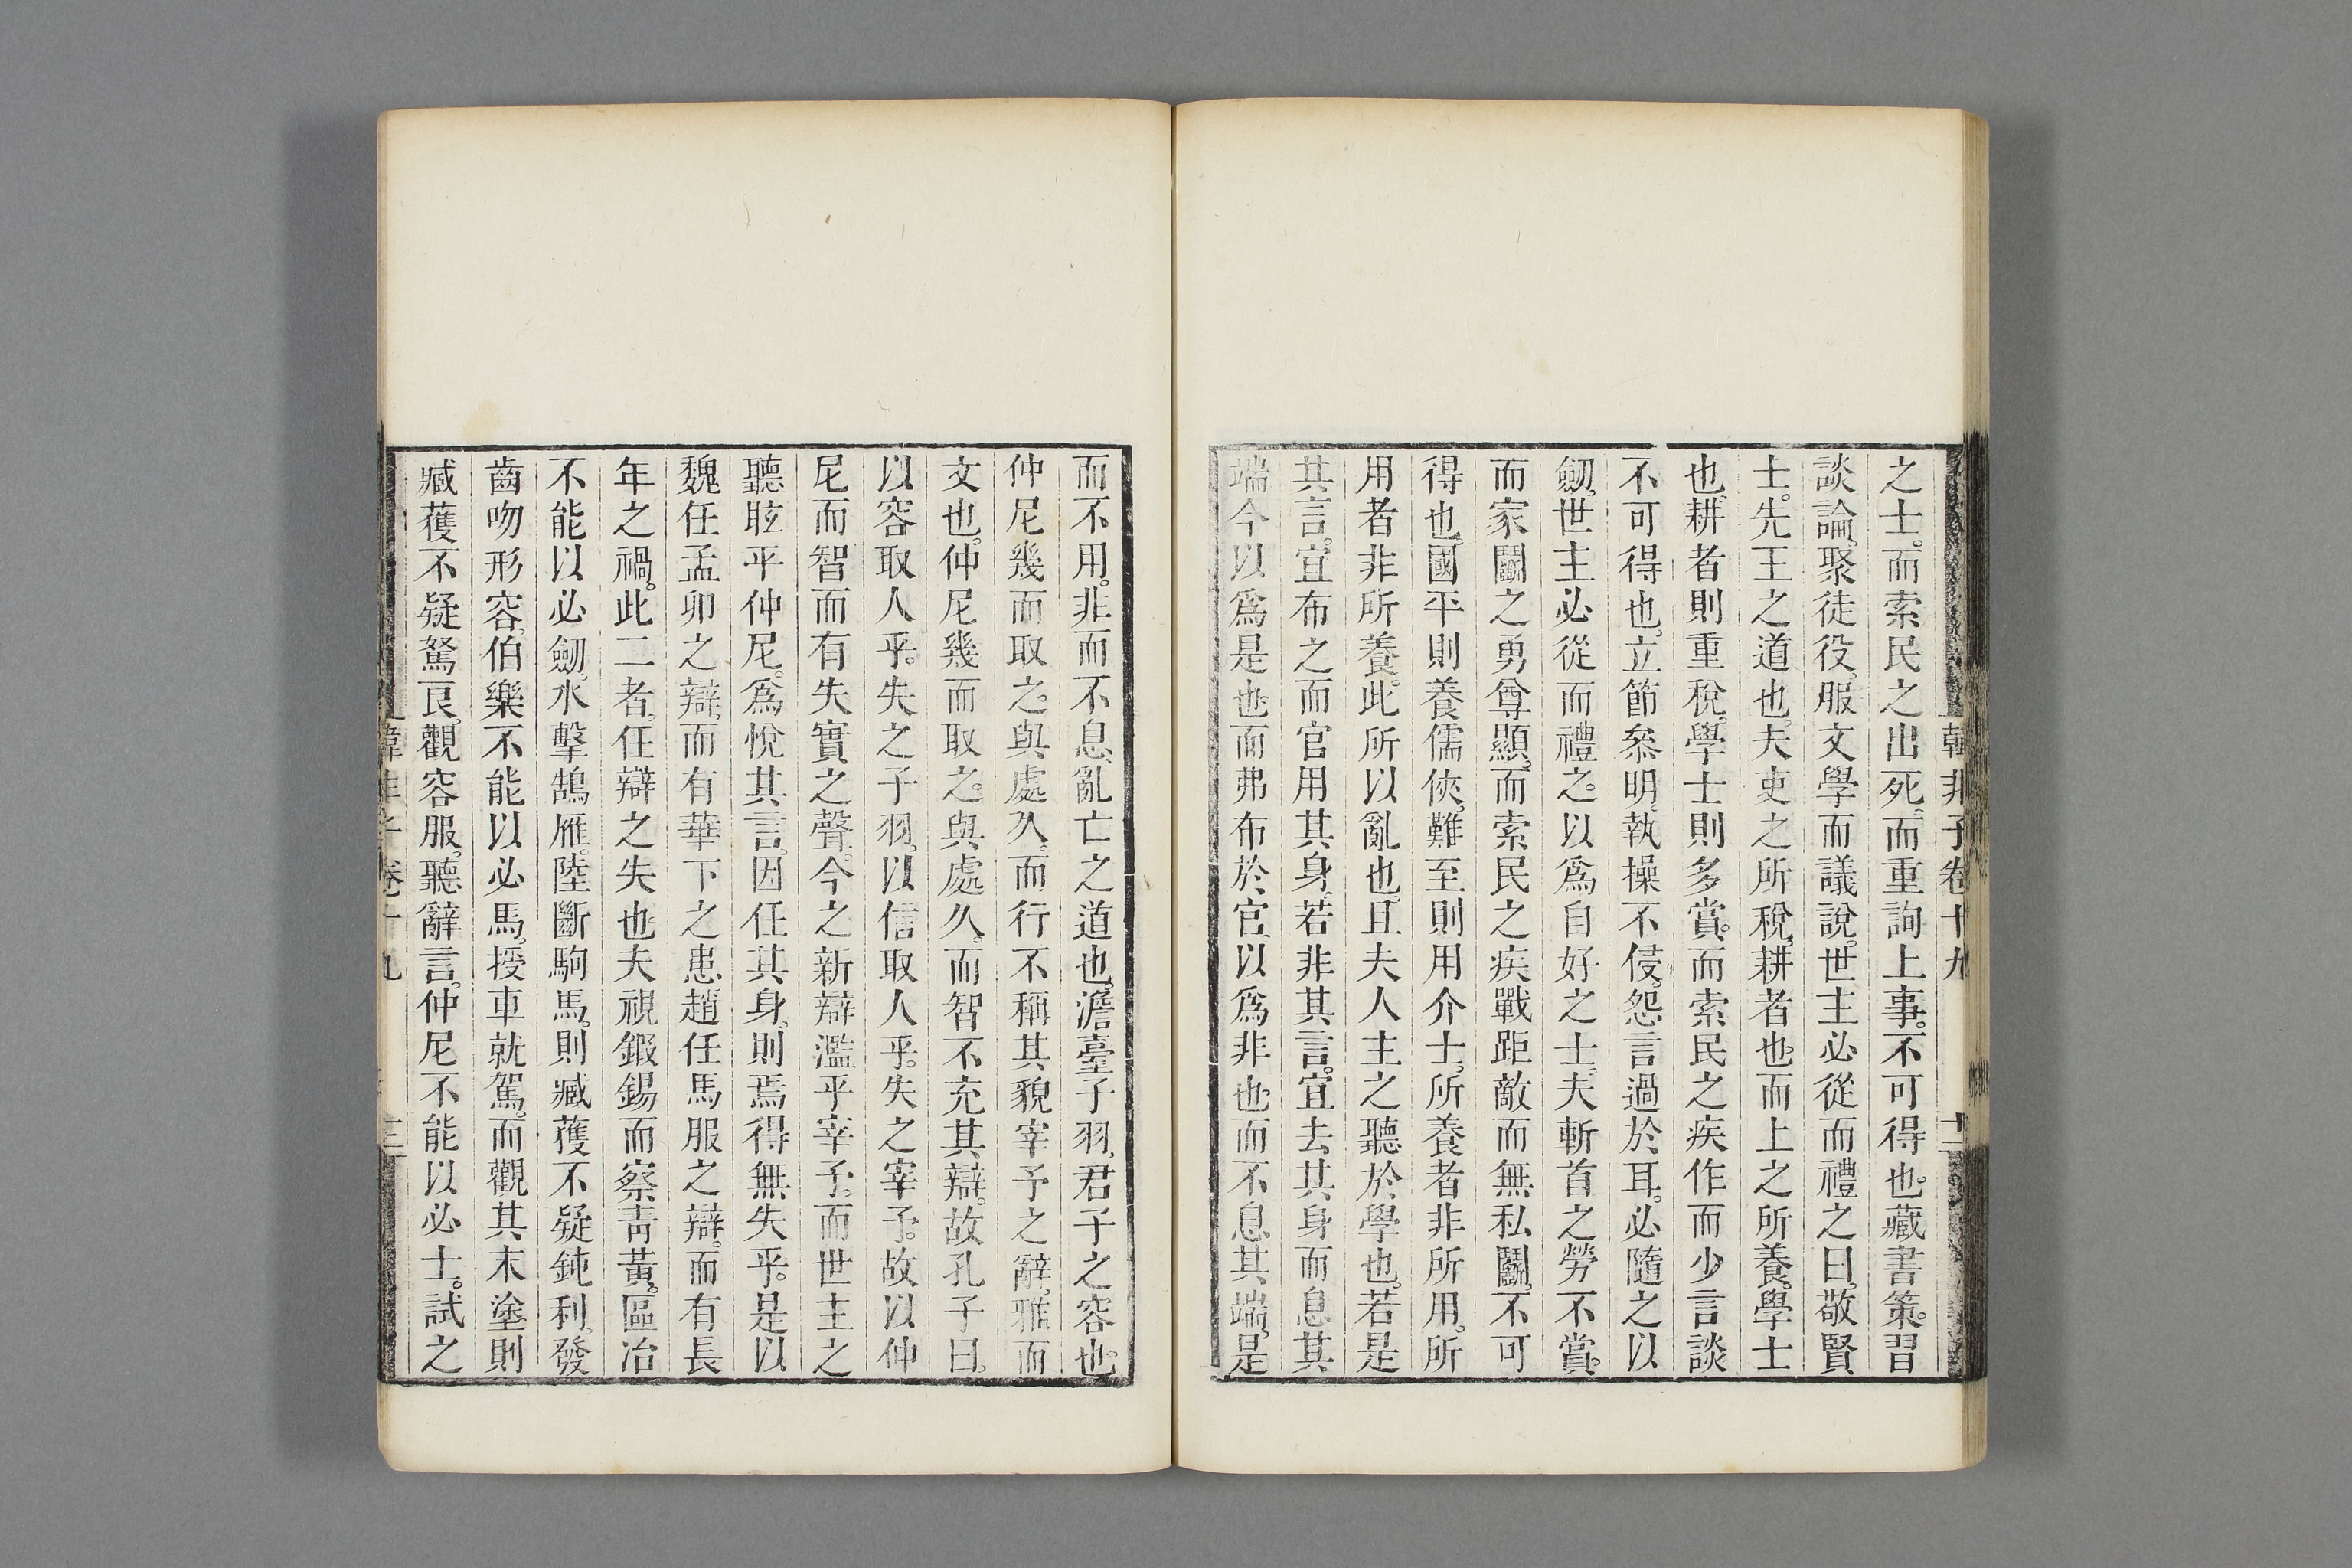 韓非子卷十九 十二
之士。而索民之出死。而重詢上事。不可得也。藏書策。習
談論。聚徒役。服文學而議說。世主必從而禮之曰。敬賢
士。先王之道也。夫吏之所稅。耕者也。而上之所養。學士
也。耕者則重稅。學士則多賞。而索民之疾作而少言談
不可得也。立節叅明。執操不侵。怨言過於耳。必隨之以
劒。世主必從而禮之。以爲自好之士。夫斬首之勞不賞。
而家鬭之勇尊顯。而索民之疾戰距敵而無私鬭。不可
得也。國平則養儒俠。難至則用介士。所養者非所用。所
用者非所養。此所以亂也。且夫人主之聽於學也。若是
其言。宜布之而官用其身。若非其言。宜去其身而息其
端。今以爲是也。而弗布於官。以爲非也。而不息其端。是
而不用。非而不息。亂亡之道也。澹臺子羽。君子之容也。
仲尼幾而取之。與處久。而行不稱其貌。宰予之辭。雅而
文也。仲尼幾而取之。與處久。而智不充其辯。故孔子曰。
以容取人乎。失之子羽。以信取人乎。失之宰予。故以仲
尼而智而有失實之聲。今之新辯濫乎宰予。而世主之
聽眩乎仲尼。爲悅其言。因任其身。則焉得無失乎。是以
魏任孟卯之辯。而有華下之患。趙任馬服之辯。而有長
年之禍。此二者。任辯之失也。夫視鍛錫而察靑黃。區冶
不能以必劒。水擊鵠雁。陸斷駒馬。則臧獲不疑鈍利。發
齒吻形容。伯樂不能以必馬。授車就駕。而觀其末塗。則
臧獲不疑駑良。觀容服。聽辭言。仲尼不能以必士。試之
韓非子卷十九